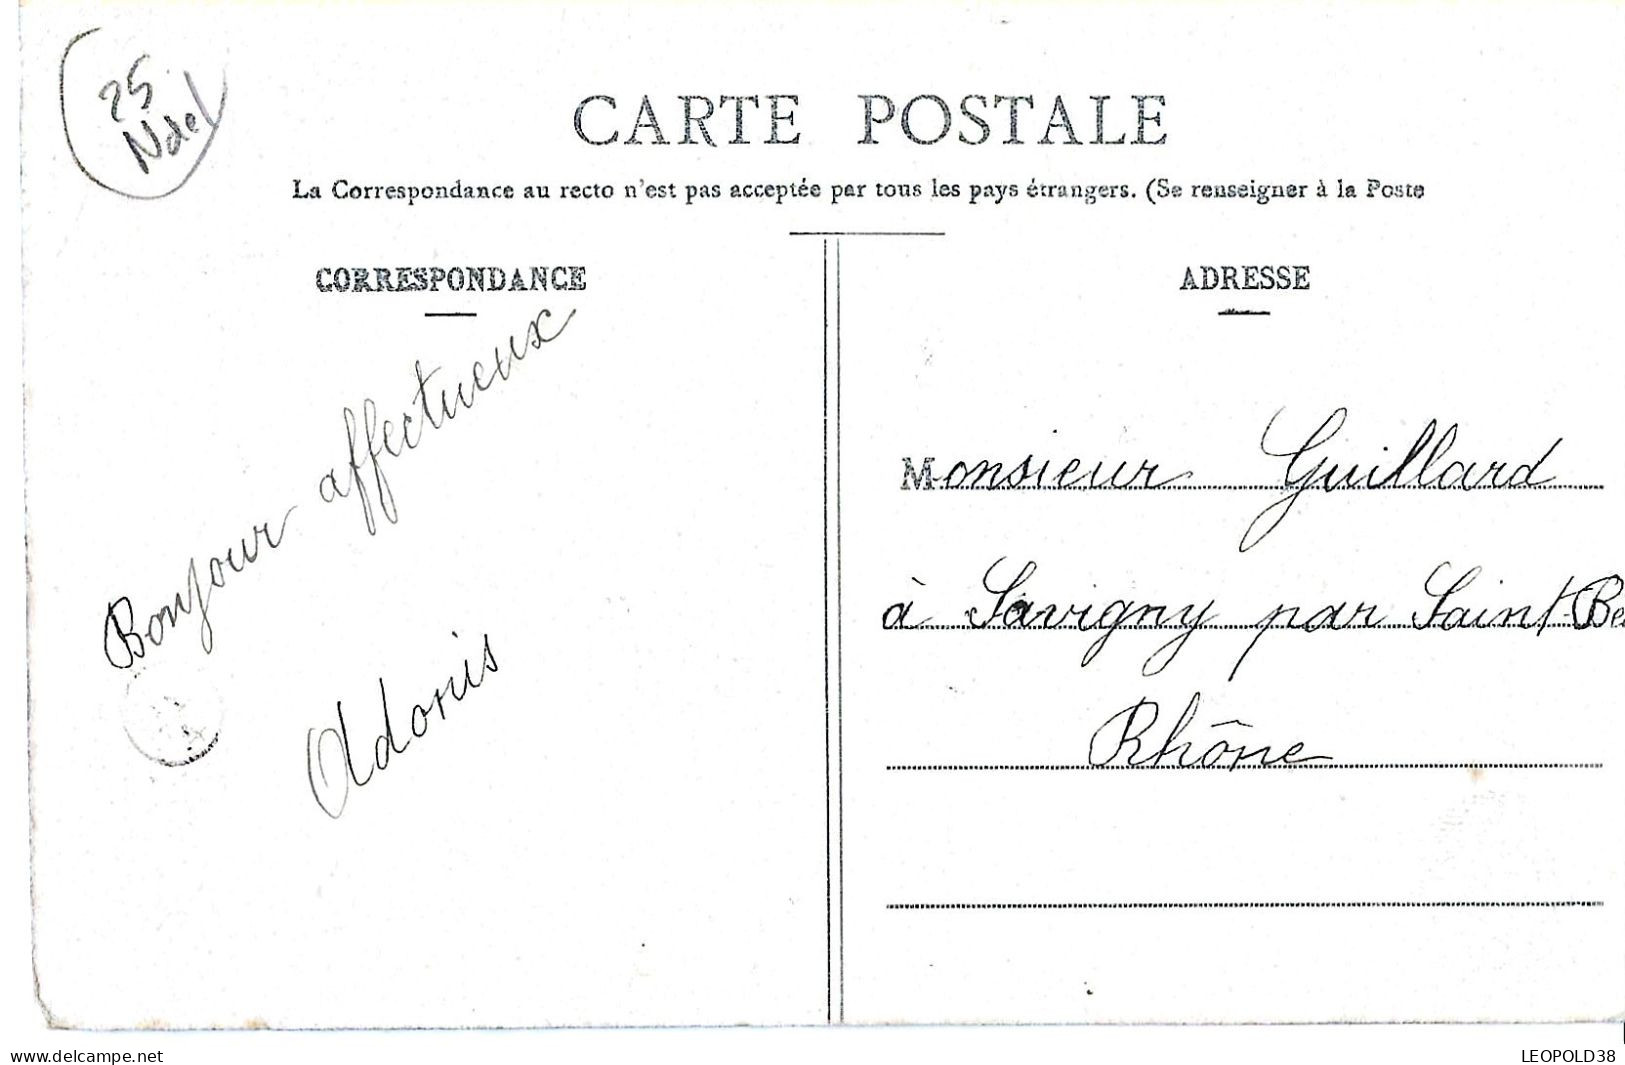 25
Ndel
CARTE POSTALE
La Correspondance au recto n'est pas acceptée par tous les pays étrangers. (Se renseigner à la Poste
CORRESPONDANCE
Bonjour affectueux
Adonis
ADRESSE
Monsieur Guillard
à Savigny par Saint-Be
Rhône
www.delcampe.net
LEOPOLD38